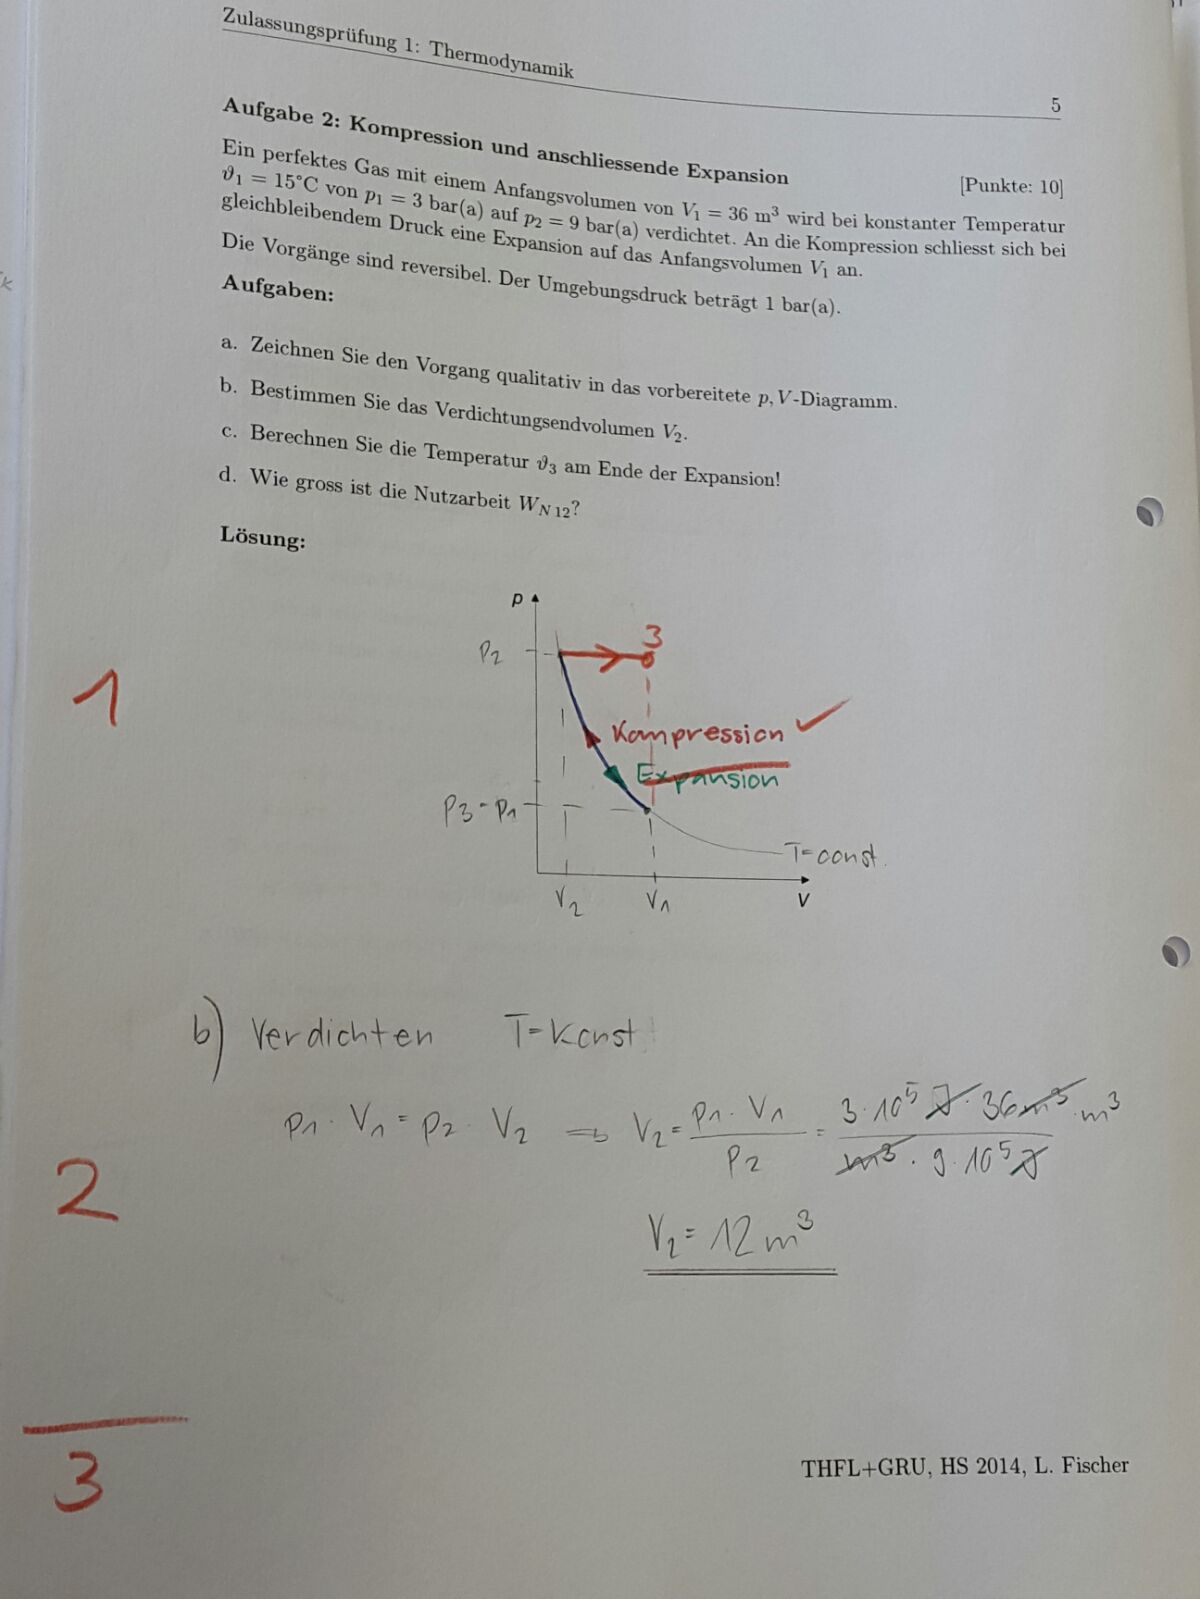 Zulassungsprüfung 1: Thermodynamik
5
Aufgabe 2: Kompression und anschliessende Expansion
[Punkte: 10]
Ein perfektes Gas mit einem Anfangsvolumen von V₁ = 36 m³ wird bei konstanter Temperatur
ϑ₁ = 15°C von p₁ = 3 bar(a) auf p₂ = 9 bar(a) verdichtet. An die Kompression schliesst sich bei
gleichbleibendem Druck eine Expansion auf das Anfangsvolumen V₁ an.
Die Vorgänge sind reversibel. Der Umgebungsdruck beträgt 1 bar(a).
Aufgaben:
a. Zeichnen Sie den Vorgang qualitativ in das vorbereitete p, V-Diagramm.
b. Bestimmen Sie das Verdichtungsendvolumen V₂.
c. Berechnen Sie die Temperatur ϑ₃ am Ende der Expansion!
d. Wie gross ist die Nutzarbeit W_N 12?
Lösung:
p
3
P₂
1
Kompression ✓
Expansion
P3 = P1
T=const.
V₂ V₁
V
b) Verdichten T=Konst
P₁ · V₁ = P₂ · V₂ ⇒ V₂ = P₁ · V₁ / P₂ = 3·10⁵ J · 36 m³ · m³ / m³ · 9·10⁵ J
2
V₂ = 12 m³
3
THFL+GRU, HS 2014, L. Fischer